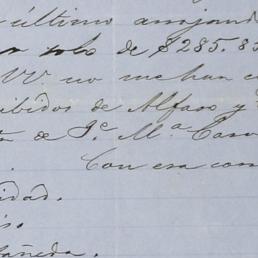 último arrojand
solo de $285.85
VV. no me han
cibidos de Alfaro y
de J.e M.a Caro
Con esa com
idad.
añeda.